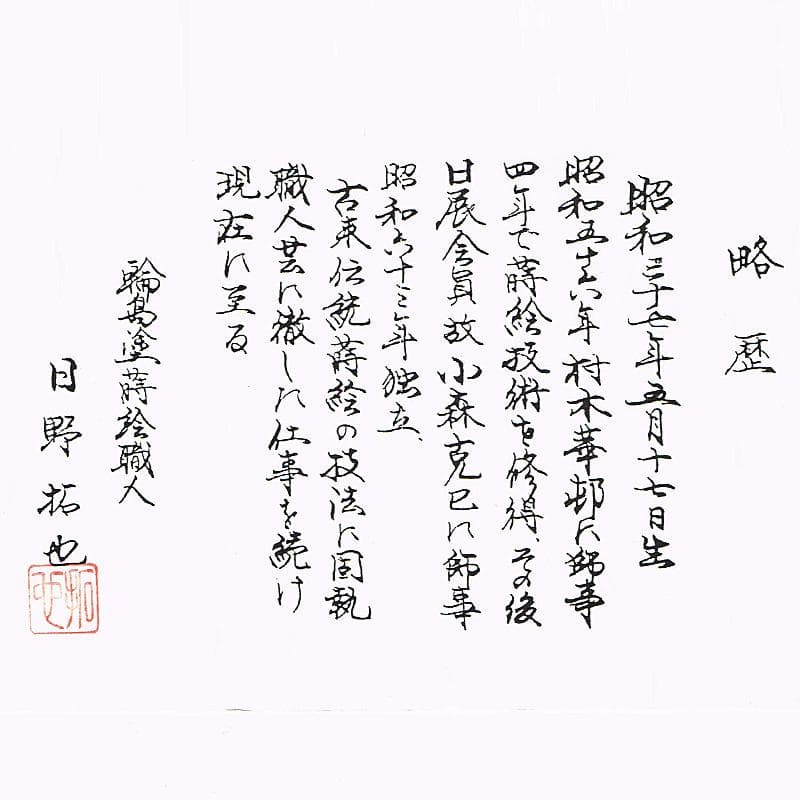 略歴
昭和三十七年五月十七日生
昭和五十六年村木華邨に師事
四年で蒔絵技術を修得、その後
日展会員故小森克巳に師事
昭和六十三年独立、
古来伝統蒔絵の技法に固執
職人芸に徹した仕事を続け
現在に至る
輪島塗蒔絵職人
日野拓也
拓也